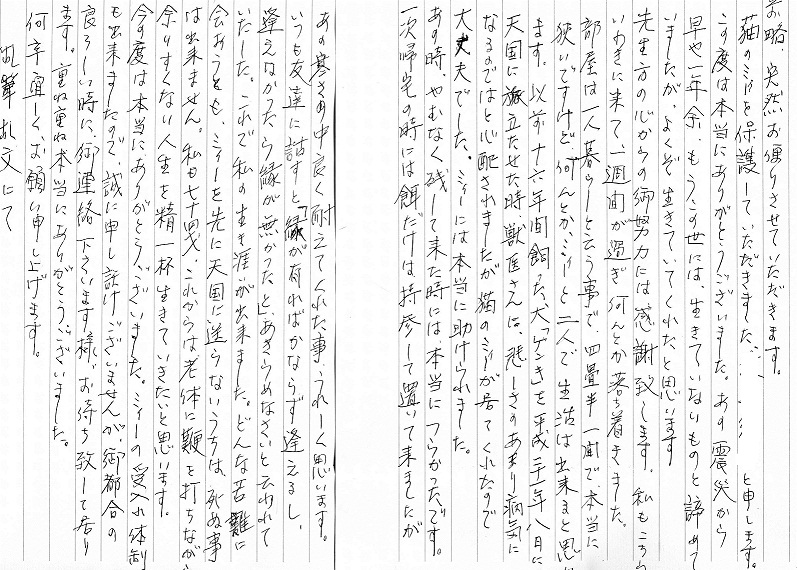 前略 突然お便りさせていただきます。
猫のミーを保護していただきました と申します。
この度は本当にありがとうございました。あの震災から
早や一年余、もうこの世には、生きていないものと諦めて
いましたが、よくぞ生きていてくれたと思います
先生方の心からの御努力には感謝致します。私もこちら
いわきに来て、一週間が過ぎ何んとか落ち着きました。
部屋は一人暮らしと云う事で四畳半一間で、本当に
狭いですけど、何んとかミーと二人で生活は出来ると思い
ます。以前十六年間飼った犬「ゲンキ」を平成二十一年八月に
天国に旅立たせた時、獣医さんは、悲しさのあまり病気に
なるのではと心配されましたが猫のミーが居てくれたので
大丈夫でした。ミーには本当に助けられました。
あの時、やむなく残して来た時には本当につらかったです。
一次帰宅の時には餌だけは持参して置いて来ましたが
あの寒さの中良く耐えてくれた事、うれしく思います。
いつも友達に話すと「縁が有ればかならず逢えるし、
逢えなかったら縁が無かったと、あきらめなさい」と云われて
いたした。これで私の生き涯が出来ました。どんな苦難に
会おうとも、ミーを先に天国に送らないうちは、死ぬ事
は出来ません。私も七十四才、これからは老体に鞭を打ちながら
余りすくない人生を精一杯生きていきたいと思います。
今の度は本当にありがとうございました。ミーの受入れ体制
も出来ましたので、誠に申し訳けございませんが、御都合の
良ろしい時に、御連絡下さいます様、お待ち致して居り
ます。重ね重ね本当にありがとうございました。
何卒宜しくお願い申し上げます。
乱筆乱文にて